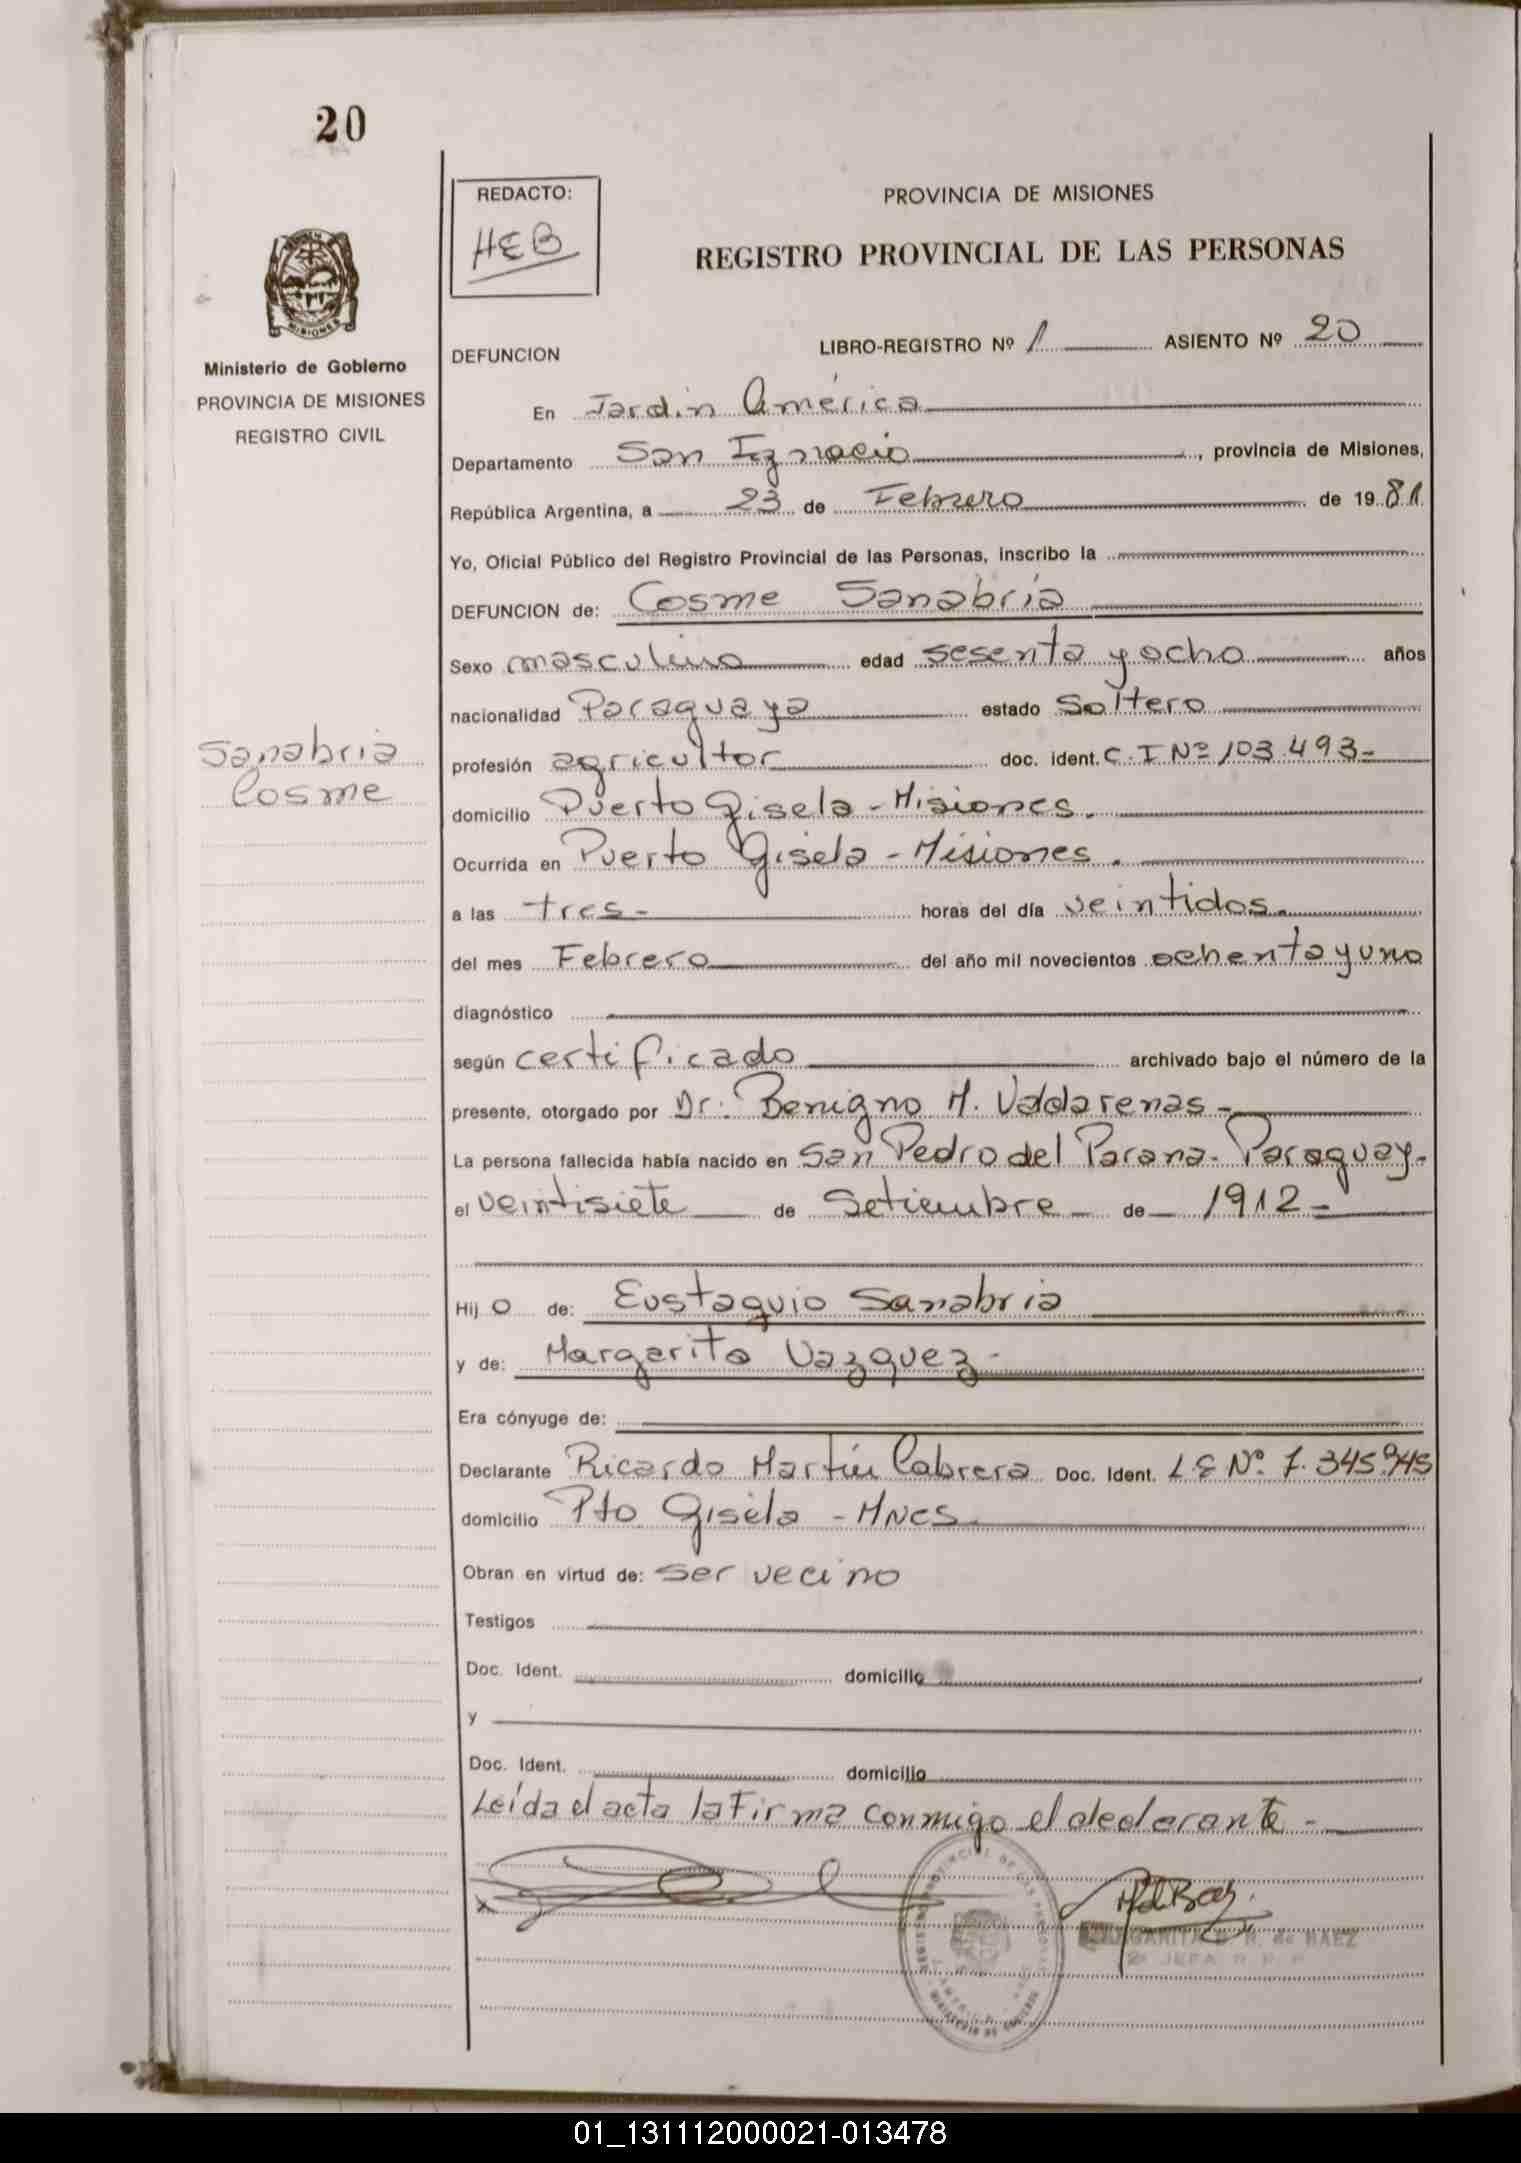 20
REDACTO:
HEB
PROVINCIA DE MISIONES
REGISTRO PROVINCIAL DE LAS PERSONAS
MISIONES
Ministerio de Gobierno
PROVINCIA DE MISIONES
REGISTRO CIVIL
DEFUNCION LIBRO-REGISTRO Nº 1 ASIENTO Nº 20
En Jardin América
Departamento San Ignacio, provincia de Misiones,
República Argentina, a 23 de Febrero de 1981
Yo, Oficial Público del Registro Provincial de las Personas, inscribo la
DEFUNCION de: Cosme Sanabria
Sexo masculino edad sesenta y ocho años
nacionalidad Paraguaya estado Soltero
Sanabria
Cosme
profesión agricultor doc. ident. C.I Nº 103.493-
domicilio Puerto Gisela - Misiones.
Ocurrida en Puerto Gisela - Misiones.
a las tres- horas del día veintidos.
del mes Febrero del año mil novecientos ochenta y uno
diagnóstico
según certificado archivado bajo el número de la
presente, otorgado por Dr. Benigno M. Valdarenas -
La persona fallecida había nacido en San Pedro del Parana. Paraguay.
el veintisiete de Setiembre de 1912 -
Hijo de: Eustaquio Sanabria
y de: Margarita Vazquez -
Era cónyuge de:
Declarante Ricardo Martin Cabrera Doc. Ident. L.E Nº 7.345.945
domicilio Pto Gisela - MNES.
Obran en virtud de: ser vecino
Testigos
Doc. Ident. domicilio
y
Doc. Ident. domicilio
Leída el acta la firma conmigo el declarante -
R. de BAEZ
JEFA R. P. P.
01_131112000021-013478